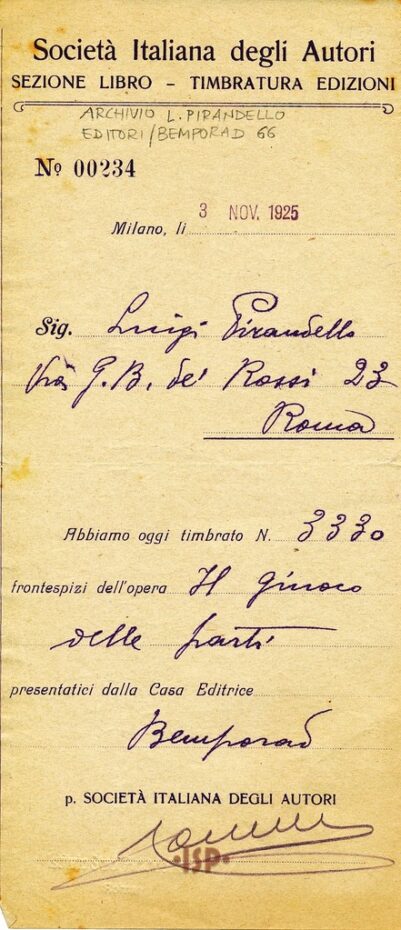 Società Italiana degli Autori
SEZIONE LIBRO – TIMBRATURA EDIZIONI
ARCHIVIO L. PIRANDELLO
EDITORI/BEMPORAD 66
Nº 00234
Milano, li 3 NOV. 1925
Sig. Luigi Pirandello
Via G.B. de' Rossi 23
Roma
Abbiamo oggi timbrato N. 3330
frontespizi dell'opera Il giuoco
delle parti
presentatici dalla Casa Editrice
Bemporad
p. SOCIETÀ ITALIANA DEGLI AUTORI
·ISP·